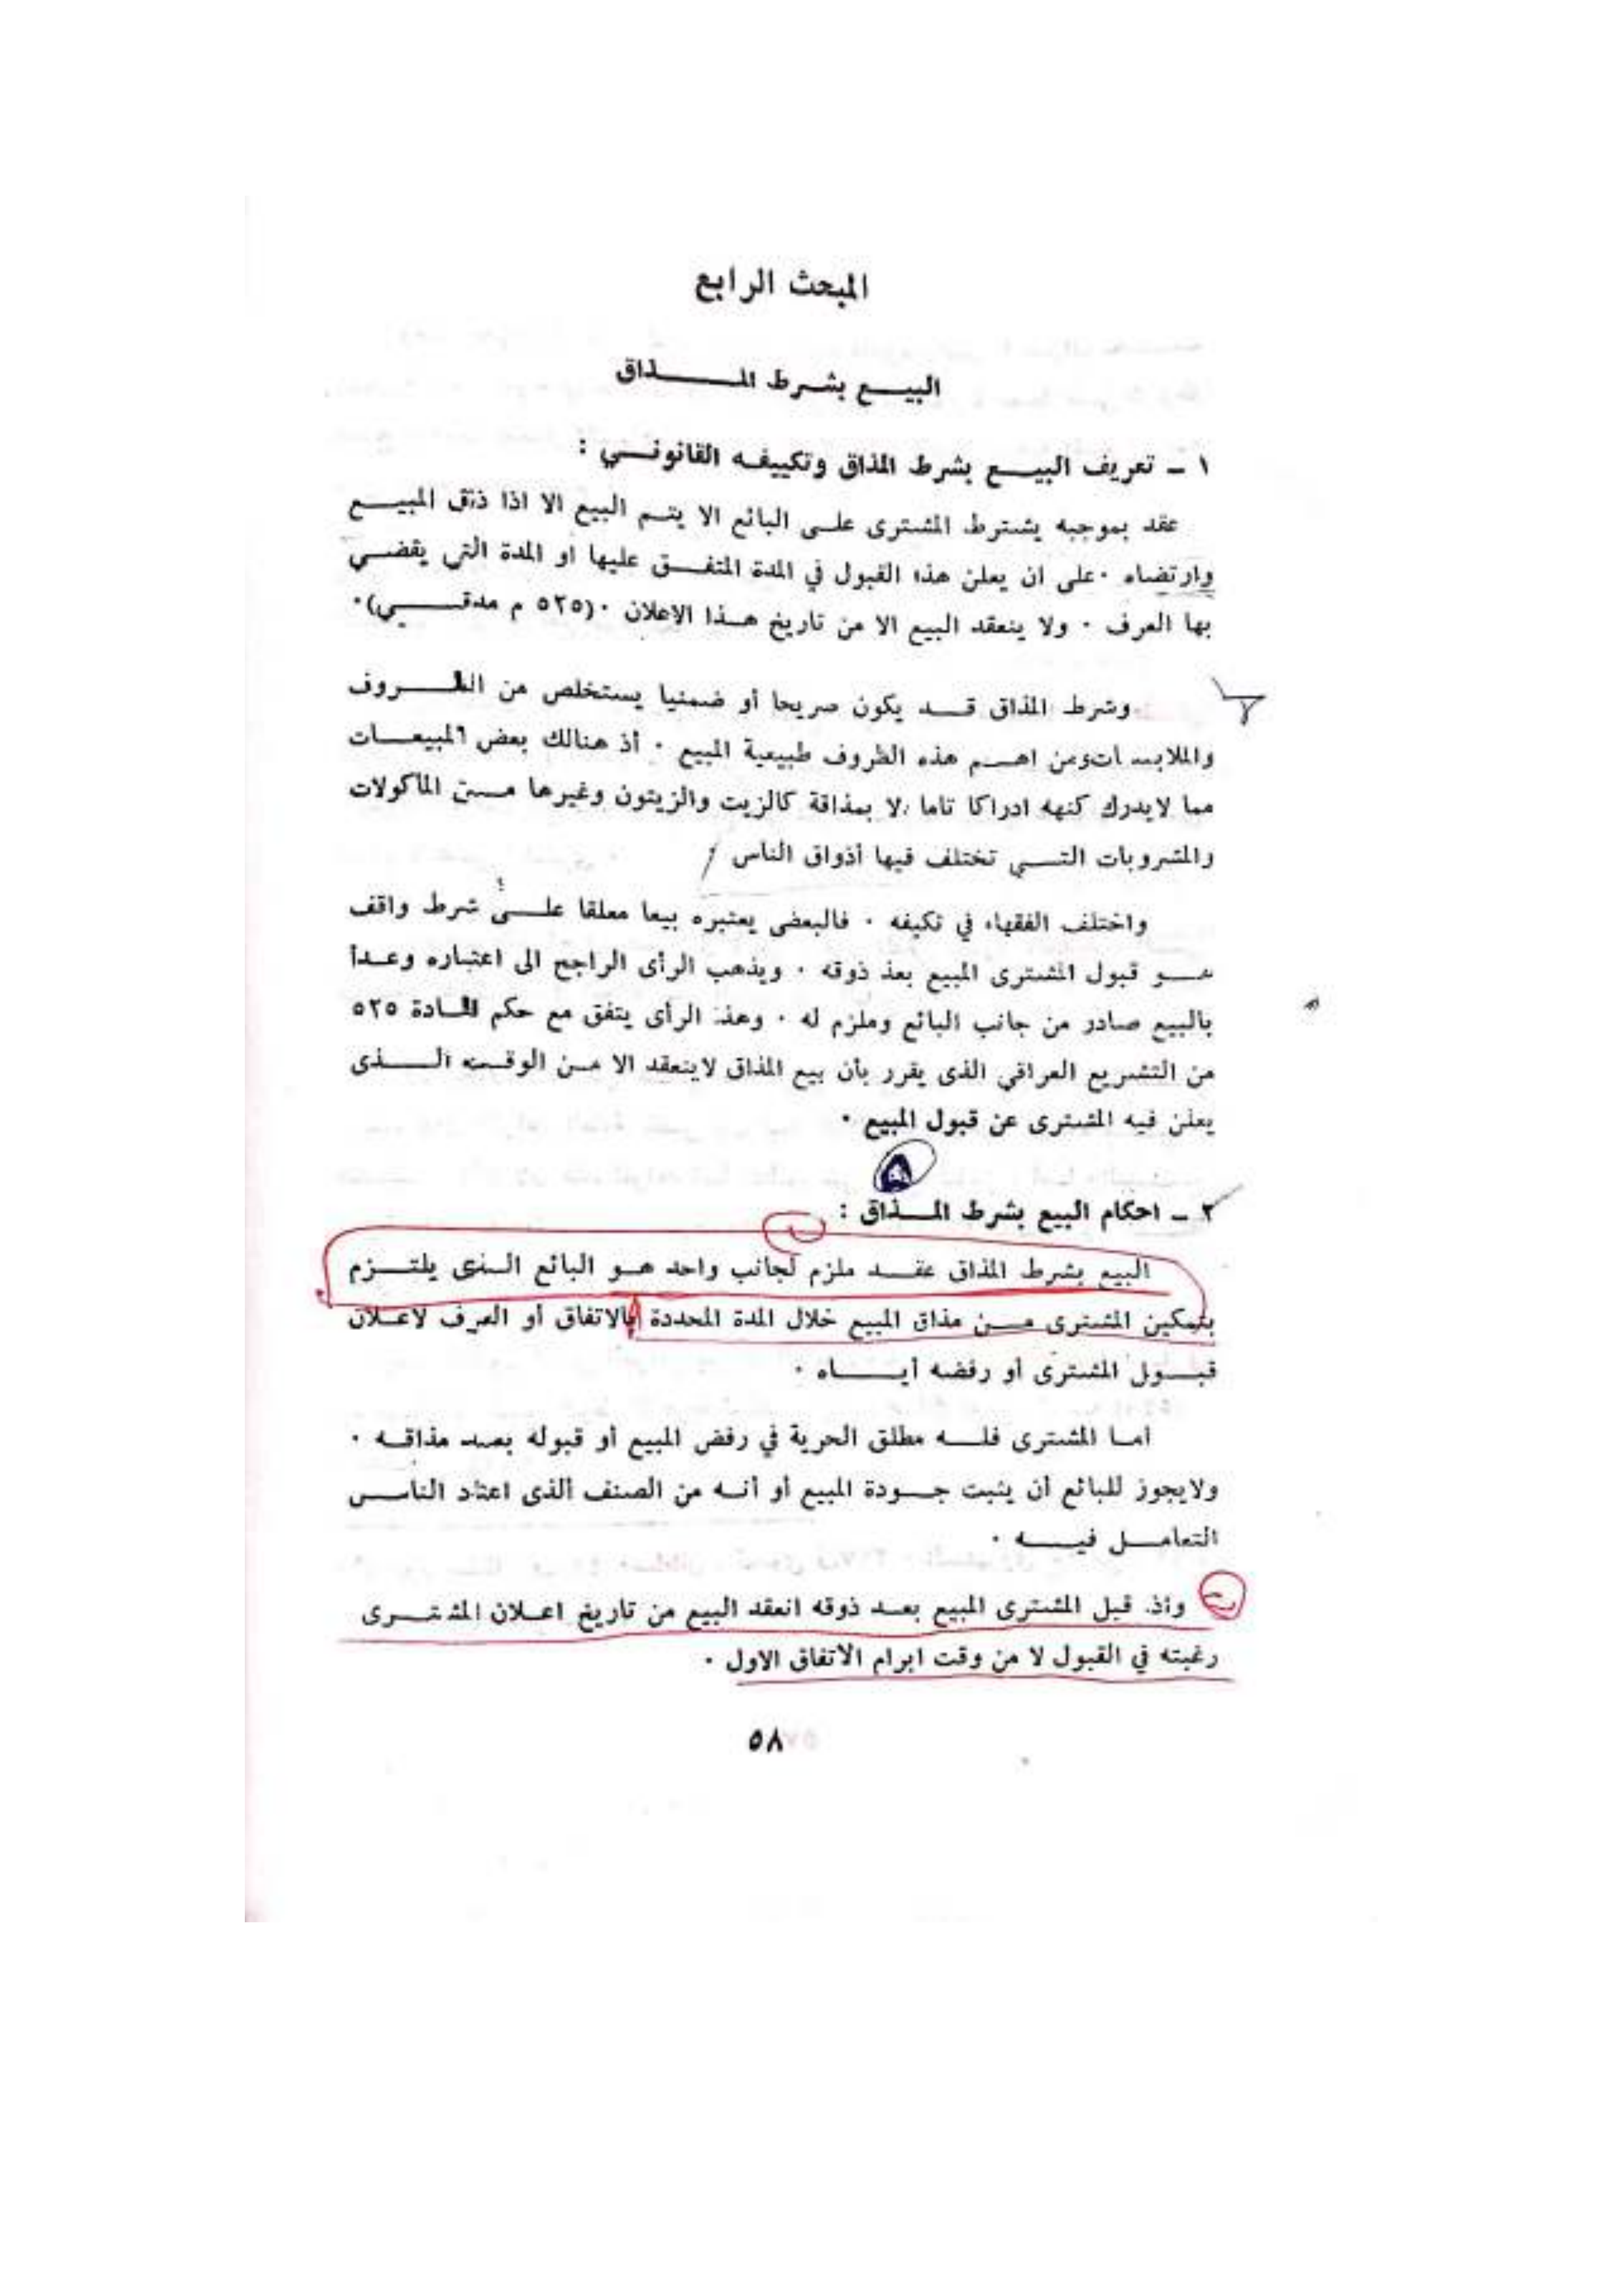 المبحث الرابع
البيع بشرط المذاق
١ - تعريف البيع بشرط المذاق وتكييفه القانوني :
عقد بموجبه يشترط المشترى على البائع الا يتم البيع الا اذا ذاق المبيع
وارتضاه ٠ على ان يعلن هذا القبول في المدة المتفق عليها او المدة التي يقضي
بها العرف ٠ ولا ينعقد البيع الا من تاريخ هذا الاعلان ٠(٥٢٥ م مدقي)٠
وشرط المذاق قد يكون صريحا أو ضمنيا يستخلص من الظروف
والملابسات ومن اهم هذه الظروف طبيعية المبيع ٠ أذ هنالك بعض المبيعات
مما لايدرك كنهه ادراكا تاما الا بمذاقة كالزيت والزيتون وغيرها من المأكولات
والمشروبات التي تختلف فيها أذواق الناس
واختلف الفقهاء في تكيفه ٠ فالبعض يعتبره بيعا معلقا على شرط واقف
هو قبول المشترى المبيع بعد ذوقه ٠ ويذهب الرأى الراجح الى اعتباره وعدأ
بالبيع صادر من جانب البائع وملزم له ٠ وهذا الرأى يتفق مع حكم المادة ٥٢٥
من التشريع العراقي الذى يقرر بأن بيع المذاق لاينعقد الا من الوقت الذى
يعلن فيه المشترى عن قبول المبيع ٠
٢ - احكام البيع بشرط المذاق :
البيع بشرط المذاق عقد ملزم لجانب واحد هو البائع الذى يلتزم
بتمكين المشترى من مذاق المبيع خلال المدة المحددة بالاتفاق أو العرف لاعلان
قبول المشترى أو رفضه أياه ٠
اما المشترى فله مطلق الحرية في رفض المبيع أو قبوله بعد مذاقه ٠
ولايجوز للبائع أن يثبت جودة المبيع أو أنه من الصنف ألذى اعتاد الناس
التعامل فيه ٠
واذا قبل المشترى المبيع بعد ذوقه انعقد البيع من تاريخ اعلان المشترى
رغبته في القبول لا من وقت ابرام الاتفاق الاول ٠
٥٨